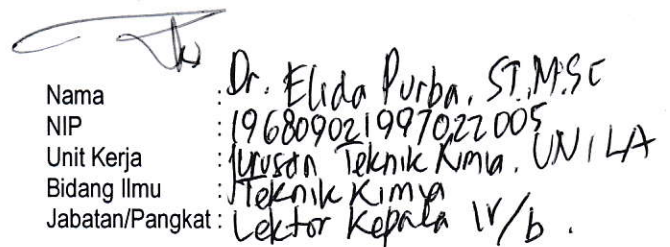 Nama : Dr. Elida Purba, ST, M.Sc
NIP : 196809021997022005
Unit Kerja : Jurusan Teknik Kimia, UNILA
Bidang Ilmu : Teknik Kimia
Jabatan/Pangkat : Lektor Kepala IV/b.